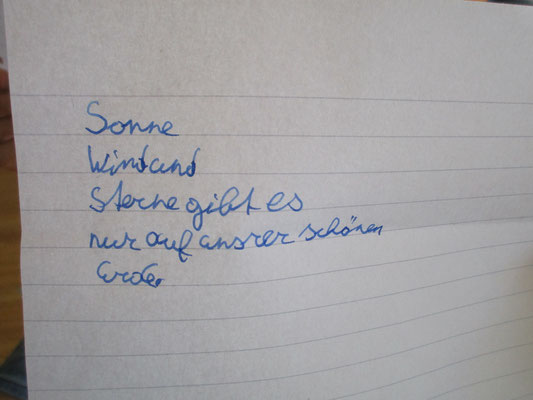 Sonne
Wind und
Sterne gibt es
nur auf unsrer schönen
Erde.